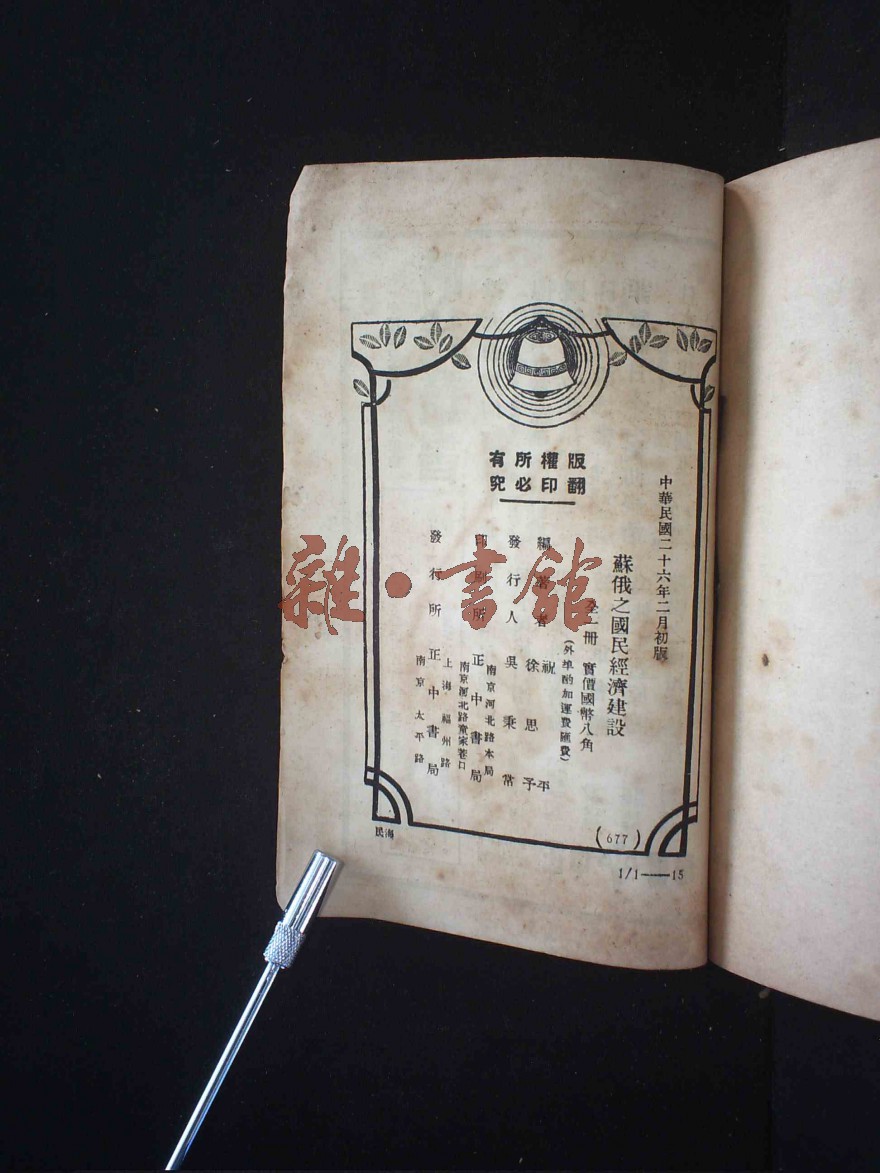 版權所有
翻印必究
中華民國二十六年二月初版
蘇俄之國民經濟建設
全一冊 實價國幣八角
(外埠酌加運費匯費)
編著者 祝平 徐思予
發行人 吳秉常
印刷所 正中書局
南京河北路本局
南京河北路童家巷口
發行所 正中書局
上海福州路
南京太平路
海民
(677)
1/1——15
雜·書館